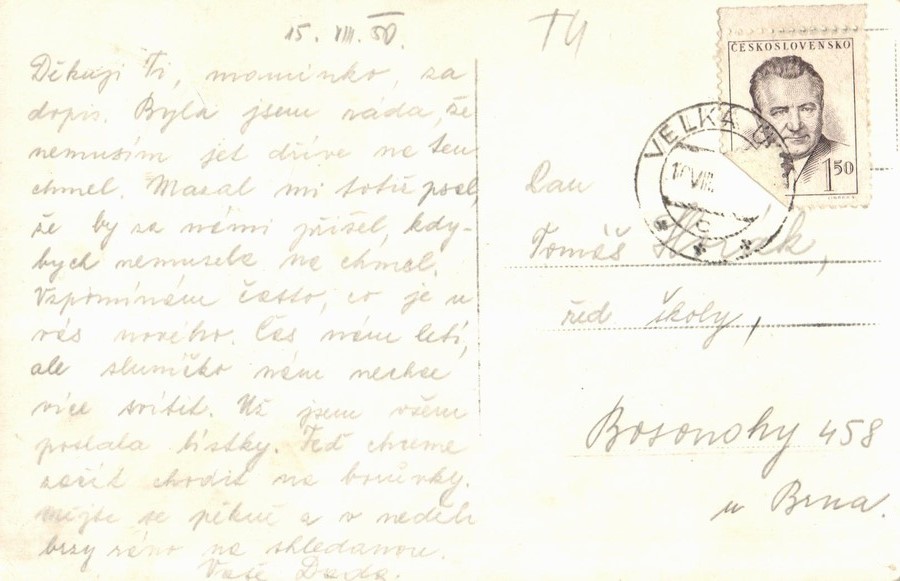 15. VIII. 50.
Děkuji Ti, maminko, za
dopis. Byla jsem ráda, že
nemusím jet dříve na ten
chmel. Masal mi totiž psal,
že by za námi přišel, kdy-
bych nemusela na chmel.
Vzpomínám často, co je u
vás nového. Čas nám letí,
ale sluníčko nám nechce
více svítit. Už jsem všem
poslala lístky. Teď chceme
začít chodit na borůvky.
Mějte se pěkně a v neděli
brzy ráno na shledanou.
Vaše Dada.
ČESKOSLOVENSKO
1 50
VELKÁ
VIII
Pan
Tomáš
řed školy,
Bosonohy 458
u Brna.